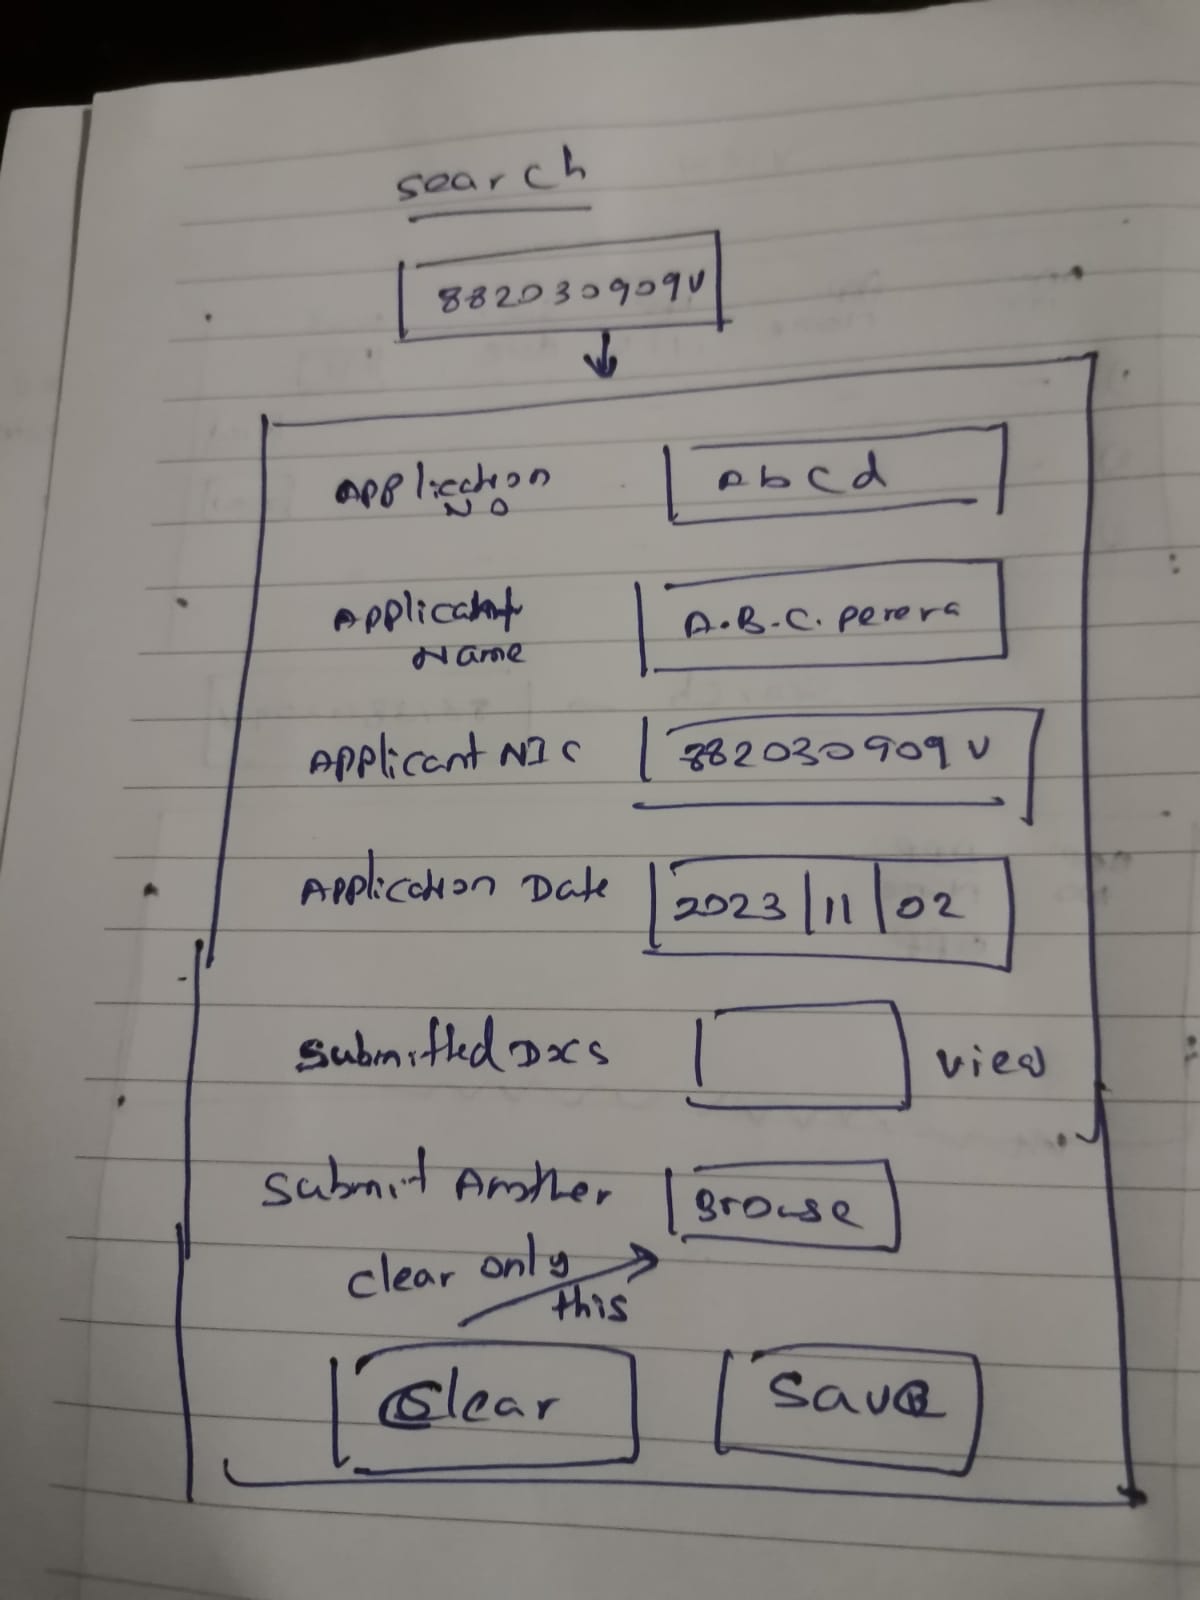 search
882030909V
Application
No
Abcd
Applicant
Name
A.B.C. Perera
Applicant NIC
882030909V
Application Date
2023/11/02
Submitted Docs
view
Submit Another
Browse
clear only
this
Clear
Save